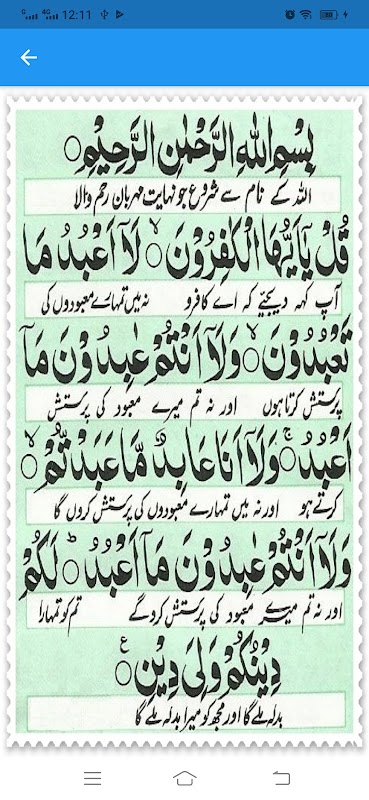 12:11
بِسْمِ اللهِ الرَّحْمٰنِ الرَّحِيْمِ
اللہ کے نام سے شروع جو نہایت مہربان رحم والا
قُلْ يٰۤاَيُّهَا الْكٰفِرُوْنَ ۙ لَاۤ اَعْبُدُ مَا
آپ کہہ دیجئے کہ اے کافرو نہ میں تمہارے معبودوں کی
تَعْبُدُوْنَ ۙ وَلَاۤ اَنْتُمْ عٰبِدُوْنَ مَاۤ
پرستش کرتا ہوں اور نہ تم میرے معبود کی پرستش
اَعْبُدُ ۚ وَلَاۤ اَنَا عَابِدٌ مَّا عَبَدْتُّمْ ۙ
کرتے ہو اور نہ میں تمہارے معبودوں کی پرستش کروں گا
وَلَاۤ اَنْتُمْ عٰبِدُوْنَ مَاۤ اَعْبُدُ ؕ لَكُمْ
اور نہ تم میرے معبود کی پرستش کرو گے تم کو تمہارا
دِيْنُكُمْ وَلِىَ دِيْنِ ع
بدلہ ملے گا اور مجھ کو میرا بدلہ ملے گا